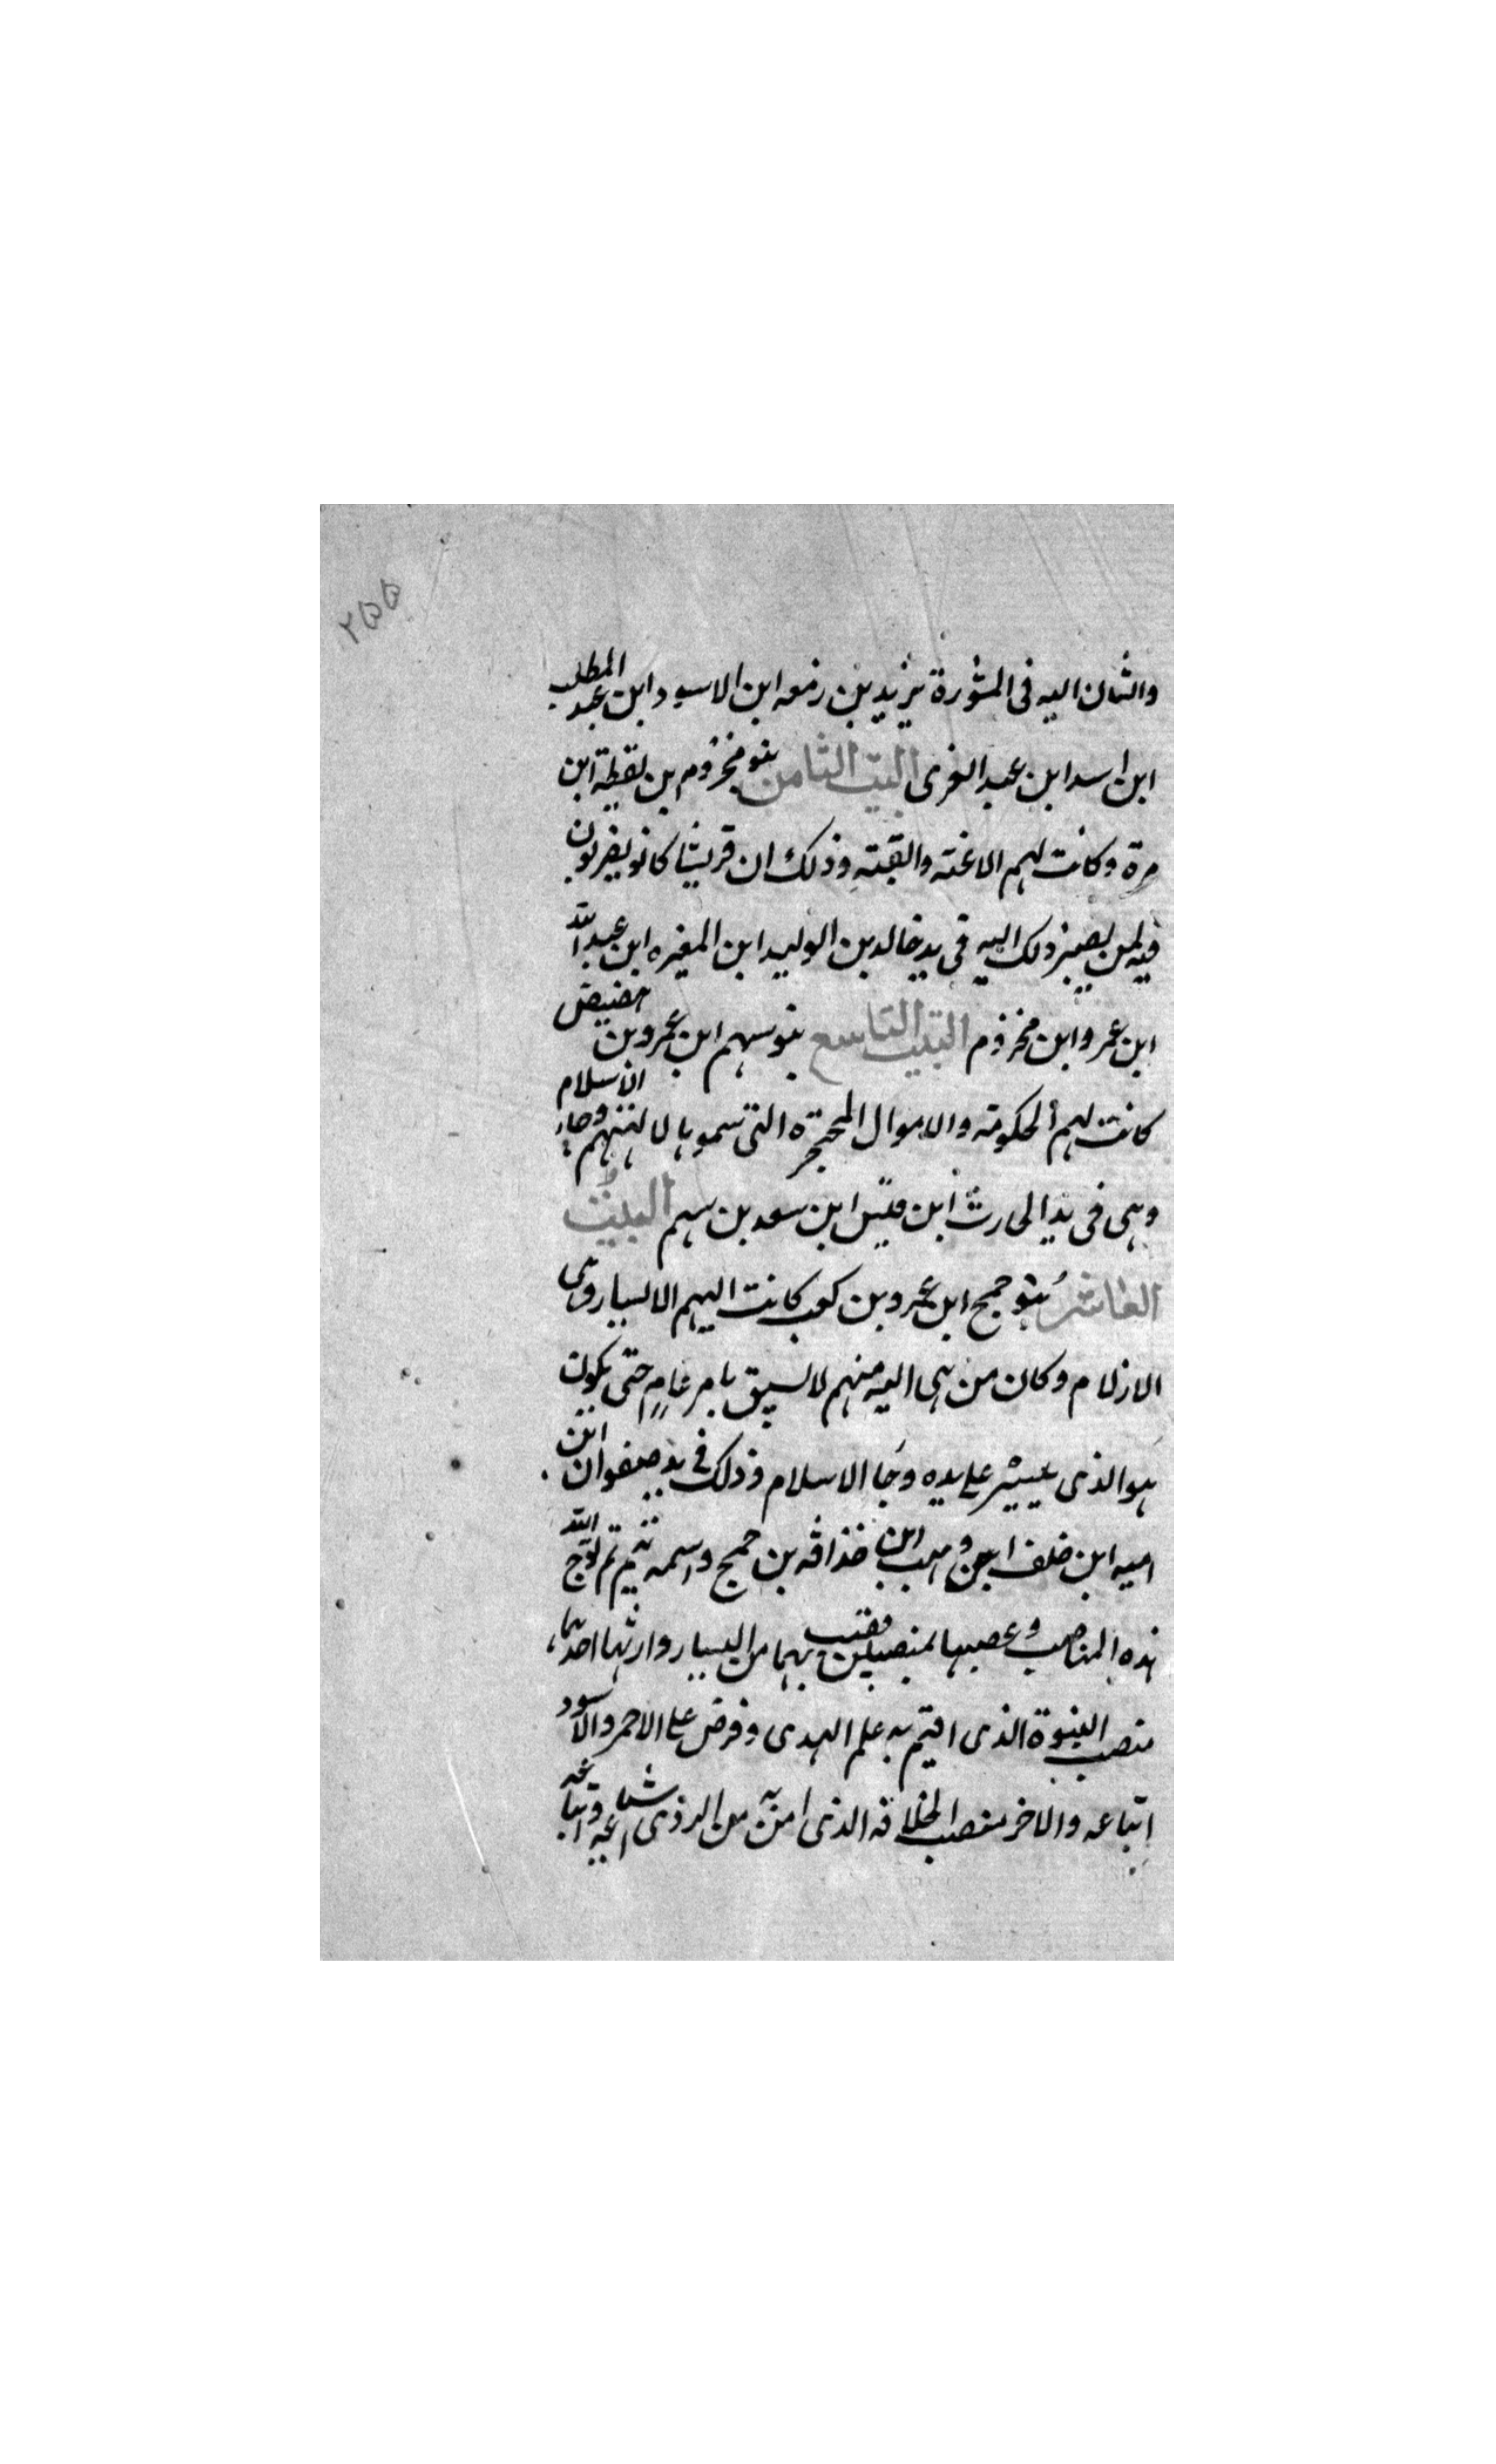 ٢٥٥
والشان اليه فى المشورة يزيد بن زمعه ابن الاسود ابن عبد المطلب
ابن اسد ابن عبد العزى البيت الثامن بنو مخزوم بن يقظة ابن
مرة وكانت لهم الاعنته والقبته وذلك ان قريشا كانو يضربون
فيه لمن يصير ذلك اليه فى يد خالد بن الوليد ابن المغيره ابن عبد الله
ابن عمرو ابن مخزوم البيت التاسع بنو سهم ابن عمرو بن هضيض
كانت لهم الحكومته والاموال المحتجرة التى سموها لالهتهم وجا الاسلام
وهى فى يد الحارث ابن قيس ابن سعد بن سهم البيت
العاشر بنو جمح ابن عمرو بن كعب كانت اليهم الايسار وهى
الازلام وكان من هى اليه منهم لا يسبق بامر عام حتى يكون
هو الذى ييسر على يده وجا الاسلام وذلك فى يد صفوان ابن
اميه ابن خلف ابن وهب ابن حذافه بن جمح واسمه تيم ثم توج الله
هذه المناصب وعصبها بمنصبين من اليسار وارثها احدهما
منصب النبوة الذى اقيم به علم الهدى وفرض على الاحمر والاسود
اتباعه والاخر منصب الخلافه الذى امن به من الردى